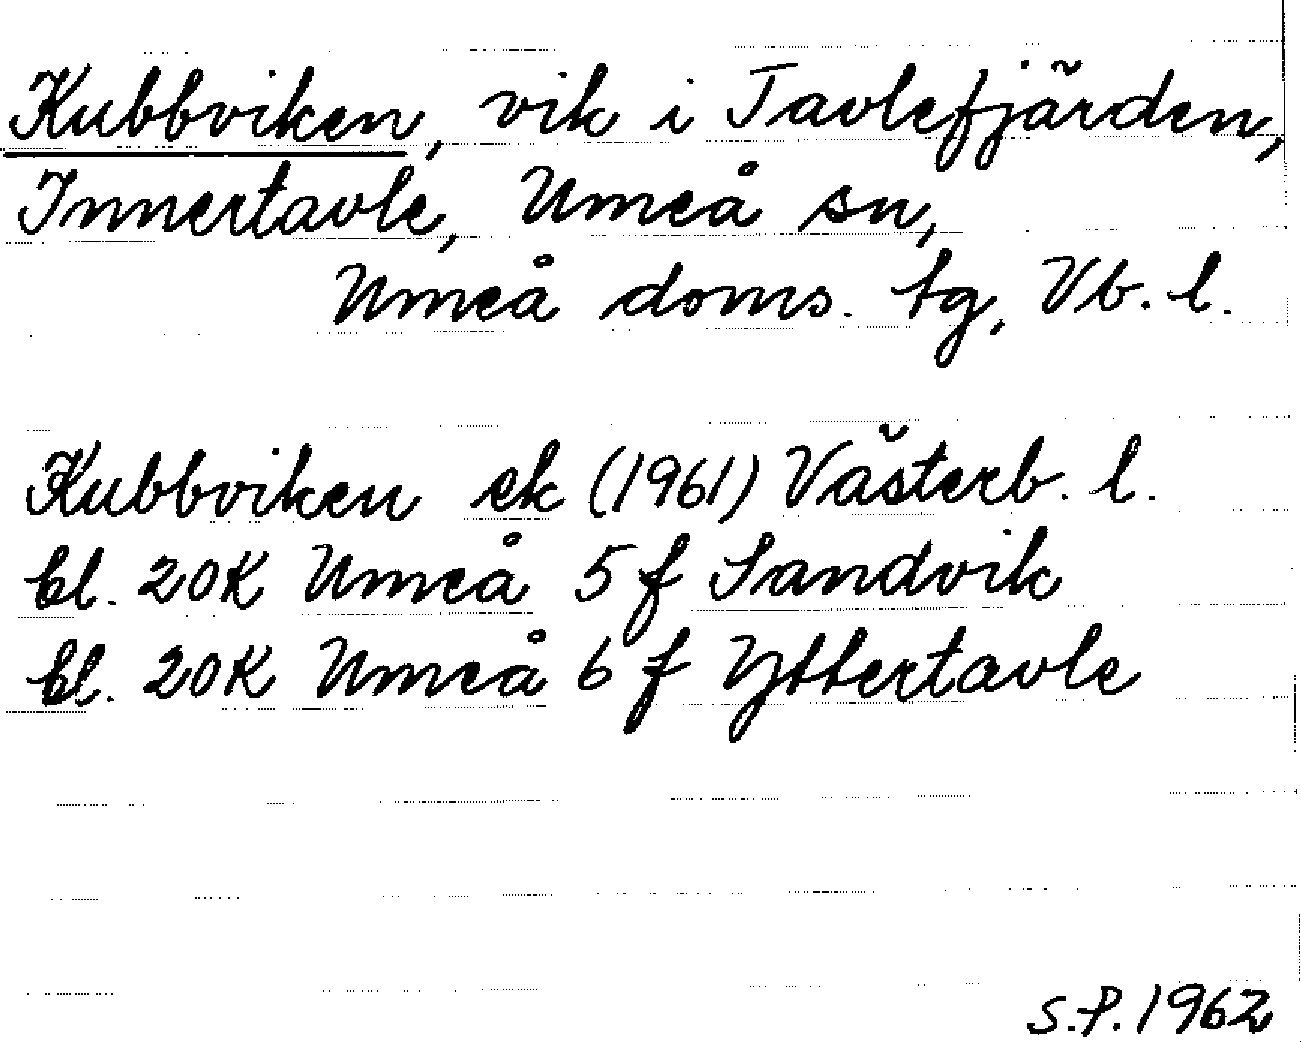 Kubbviken, vik i Tavlefjärden,
Innertavle, Umeå sn,
Umeå doms. tg, Vb. l.
Kubbviken ek (1961) Västerb. l.
bl. 20K Umeå 5 f Sandvik
bl. 20K Umeå 6 f Yttertavle
S.P. 1962